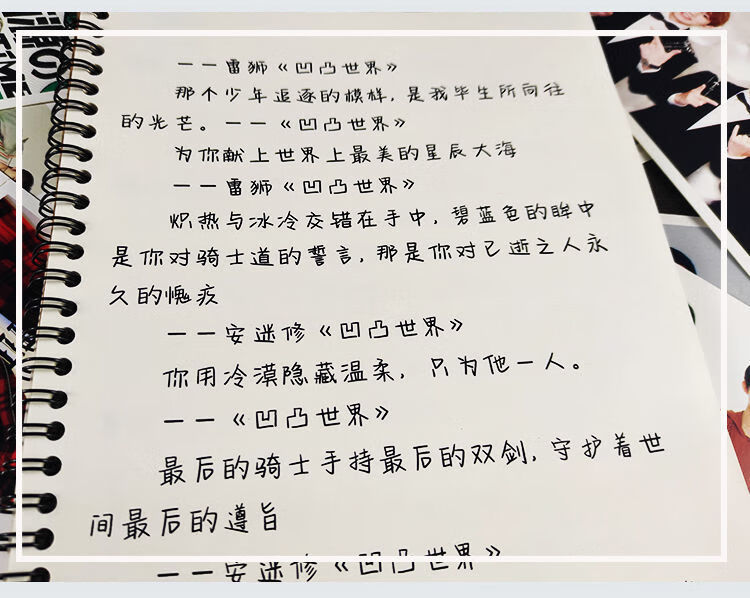 ——雷狮《凹凸世界》
那个少年追逐的模样,是我毕生所向往
的光芒。——《凹凸世界》
为你献上世界上最美的星辰大海
——雷狮《凹凸世界》
炽热与冰冷交错在手中,碧蓝色的眸中
是你对骑士道的誓言,那是你对已逝之人永
久的愧疚
——安迷修《凹凸世界》
你用冷漠隐藏温柔,只为他一人。
——《凹凸世界》
最后的骑士手持最后的双剑,守护着世
间最后的遵旨
——安迷修《凹凸世界》